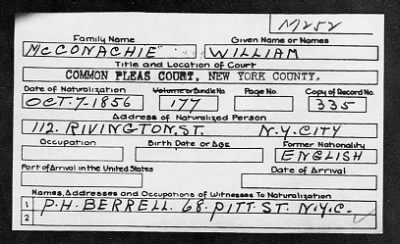 M252
Family Name Given Name or Names
McCONACHIE WILLIAM
Title and Location of Court
COMMON PLEAS COURT, NEW YORK COUNTY.
Date of Naturalization Volume or Bundle No. Page No. Copy of Record No.
OCT. 7-1856 177 335
Address of Naturalized Person
112. RIVINGTON. ST. N.Y. CITY
Occupation Birth Date or Age Former Nationality
ENGLISH
Port of Arrival in the United States Date of Arrival
Names, Addresses and Occupations of Witnesses To Naturalization
1 P.H. BERRELL. 68. PITT. ST. N.Y.C.
2